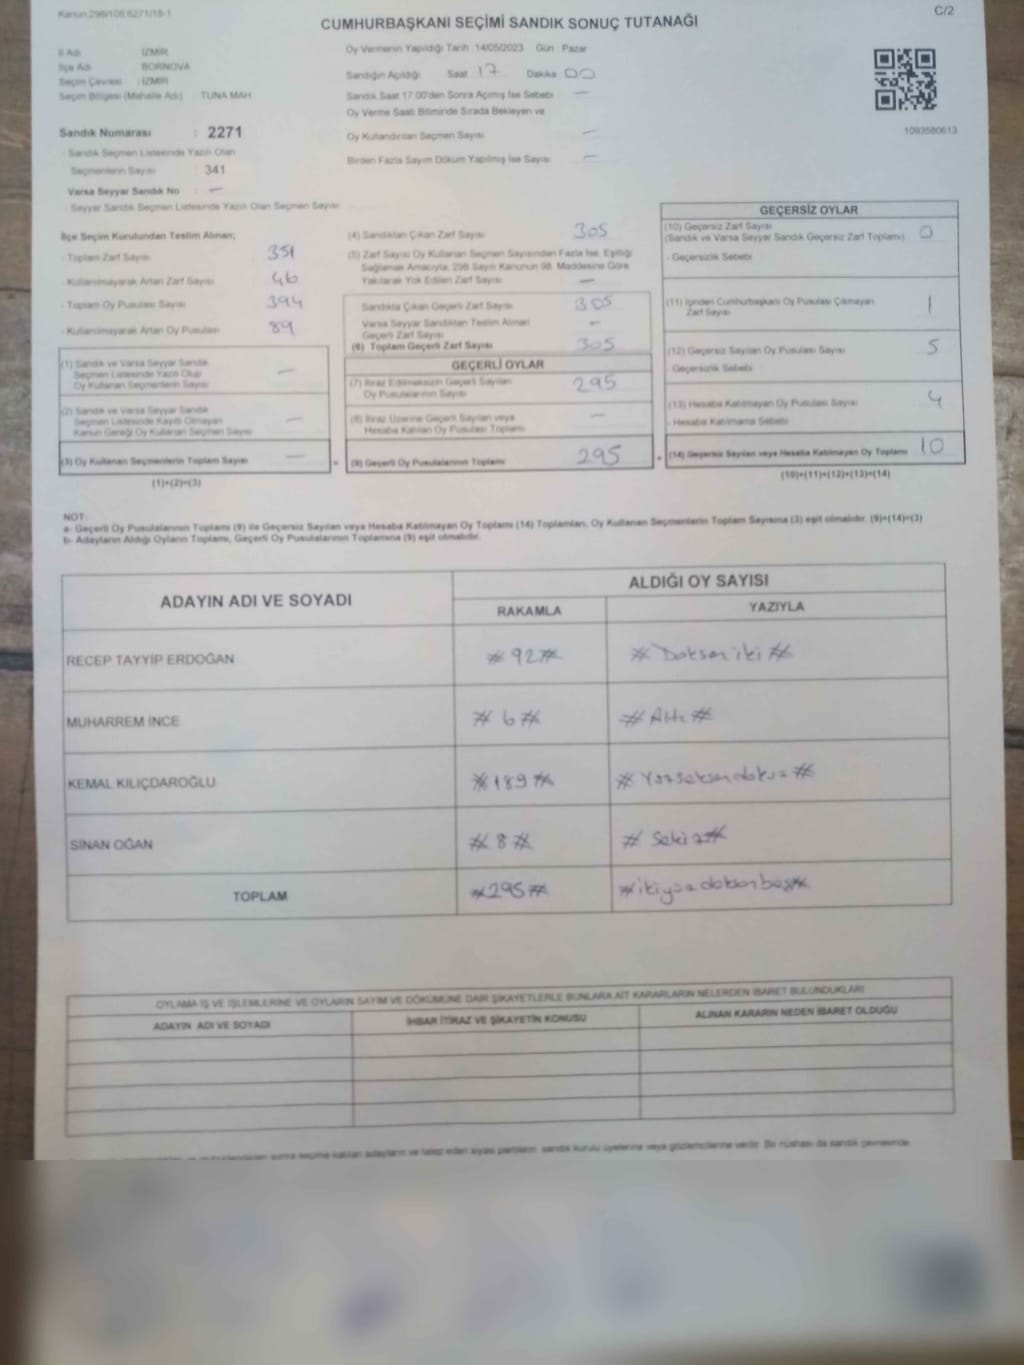 Kanun:298/106,6271/18-1
C/2
CUMHURBAŞKANI SEÇİMİ SANDIK SONUÇ TUTANAĞI
İl Adı : İZMİR
İlçe Adı : BORNOVA
Seçim Çevresi : İZMİR
Seçim Bölgesi (Mahalle Adı) : TUNA MAH
Oy Vermenin Yapıldığı Tarih :14/05/2023 Gün : Pazar
Sandığın Açıldığı Saat 17 Dakika 00
Sandık Saat 17.00'den Sonra Açılmış İse Sebebi —
Oy Verme Saati Bitiminde Sırada Bekleyen ve
Oy Kullandırılan Seçmen Sayısı —
Birden Fazla Sayım Döküm Yapılmış İse Sayısı —
1093580613
Sandık Numarası : 2271
- Sandık Seçmen Listesinde Yazılı Olan
Seçmenlerin Sayısı : 341
Varsa Seyyar Sandık No : —
- Seyyar Sandık Seçmen Listesinde Yazılı Olan Seçmen Sayısı:
İlçe Seçim Kurulundan Teslim Alınan;
- Toplam Zarf Sayısı 351
- Kullanılmayarak Artan Zarf Sayısı 46
- Toplam Oy Pusulası Sayısı 394
- Kullanılmayarak Artan Oy Pusulası 89
(1) Sandık ve Varsa Seyyar Sandık
Seçmen Listesinde Yazılı Olup
Oy Kullanan Seçmenlerin Sayısı —
(2) Sandık ve Varsa Seyyar Sandık
Seçmen Listesinde Kayıtlı Olmayan
Kanun Gereği Oy Kullanan Seçmen Sayısı —
(3) Oy Kullanan Seçmenlerin Toplam Sayısı —
(1)+(2)=(3)
(4) Sandıktan Çıkan Zarf Sayısı 305
(5) Zarf Sayısı Oy Kullanan Seçmen Sayısından Fazla İse, Eşitliği
Sağlamak Amacıyla; 298 Sayılı Kanunun 98. Maddesine Göre
Yakılarak Yok Edilen Zarf Sayısı —
Sandıkta Çıkan Geçerli Zarf Sayısı 305
Varsa Seyyar Sandıktan Teslim Alınan
Geçerli Zarf Sayısı —
(6) Toplam Geçerli Zarf Sayısı 305
GEÇERLİ OYLAR
(7) İtiraz Edilmeksizin Geçerli Sayılan
Oy Pusulalarının Sayısı 295
(8) İtiraz Üzerine Geçerli Sayılan veya
Hesaba Katılan Oy Pusulası Toplamı —
= (9) Geçerli Oy Pusulalarının Toplamı 295
GEÇERSİZ OYLAR
(10) Geçersiz Zarf Sayısı
(Sandık ve Varsa Seyyar Sandık Geçersiz Zarf Toplamı) 0
- Geçersizlik Sebebi
(11) İçinden Cumhurbaşkanı Oy Pusulası Çıkmayan
Zarf Sayısı 1
(12) Geçersiz Sayılan Oy Pusulası Sayısı 5
- Geçersizlik Sebebi
(13) Hesaba Katılmayan Oy Pusulası Sayısı 4
- Hesaba Katılmama Sebebi
+ (14) Geçersiz Sayılan veya Hesaba Katılmayan Oy Toplamı 10
(10)+(11)+(12)+(13)=(14)
NOT:
a- Geçerli Oy Pusulalarının Toplamı (9) ile Geçersiz Sayılan veya Hesaba Katılmayan Oy Toplamı (14) Toplamları, Oy Kullanan Seçmenlerin Toplam Sayısına (3) eşit olmalıdır. (9)+(14)=(3)
b- Adayların Aldığı Oyların Toplamı, Geçerli Oy Pusulalarının Toplamına (9) eşit olmalıdır.
ADAYIN ADI VE SOYADI ALDIĞI OY SAYISI
RAKAMLA YAZIYLA
RECEP TAYYİP ERDOĞAN #92# #Doksaniki#
MUHARREM İNCE #6# #Altı#
KEMAL KILIÇDAROĞLU #189# #Yüzseksendokuz#
SİNAN OĞAN #8# #Sekiz#
TOPLAM #295# #ikiyüzdoksanbeş#
OYLAMA İŞ VE İŞLEMLERİNE VE OYLARIN SAYIM VE DÖKÜMÜNE DAİR ŞİKAYETLERLE BUNLARA AİT KARARLARIN NELERDEN İBARET BULUNDUKLARI
ADAYIN ADI VE SOYADI İHBAR İTİRAZ VE ŞİKAYETİN KONUSU ALINAN KARARIN NEDEN İBARET OLDUĞU
sonra seçime katılan adayların ve talep eden siyasi partilerin sandık kurulu üyelerine veya gözlemcilerine verilir. Bu nüshası da sandık çevresinde